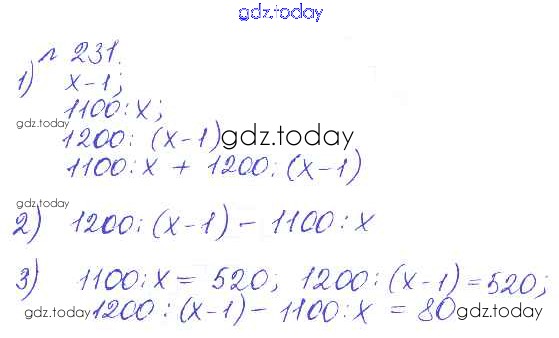 gdz.today
№ 231.
1) x-1;
1100:x;
gdz.today
1200:(x-1) gdz.today
1100:x + 1200:(x-1)
gdz.today
2) 1200:(x-1) - 1100:x
3) 1100:x = 520; 1200:(x-1) = 520;
gdz.today 1200:(x-1) - 1100:x = 80 gdz.today